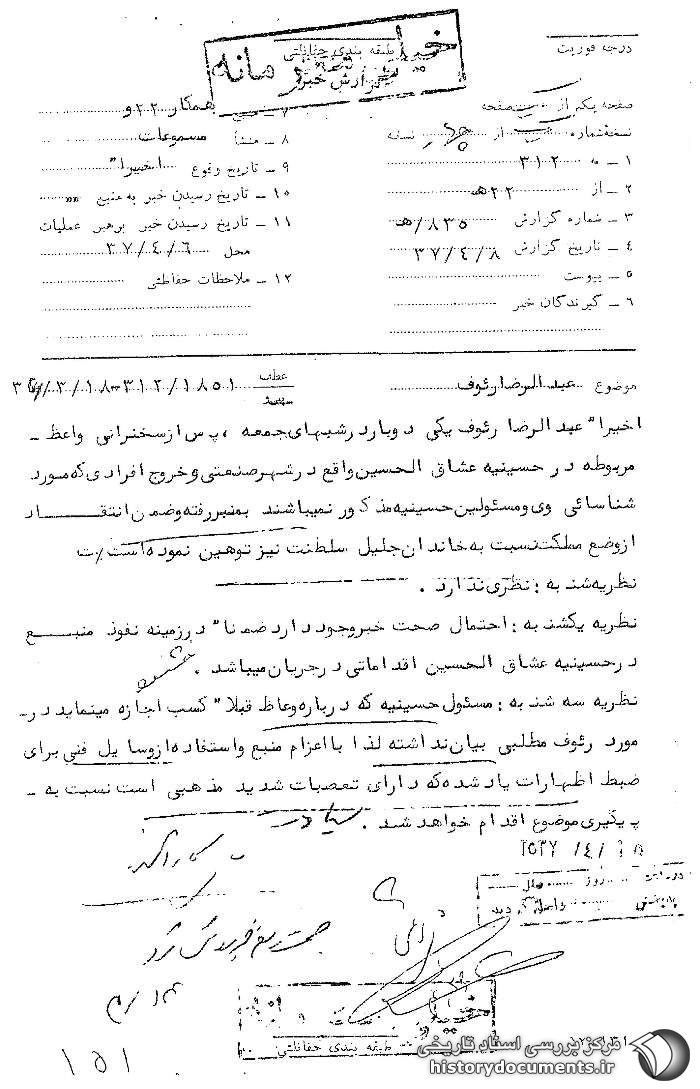 درجه فوریت
طبقه بندی حفاظتی
گزارش خبر
خیلی محرمانه
صفحه یکم از یک صفحه
نسخه شماره از نسخه
۱ - به ۳۱۲
۲ - از ۲۲ هـ
۳ - شماره گزارش ۸۳۵/هـ
۴ - تاریخ گزارش ۳۷/۴/۸
۵ - پیوست
۶ - گیرندگان خبر
۷ - منبع همکار ۲۲ و
۸ - منشأ مسموعات
۹ - تاریخ وقوع اخیرا"
۱۰ - تاریخ رسیدن خبر به منبع ""
۱۱ - تاریخ رسیدن خبر برهبر عملیات
محل ۳۷/۴/۶
۱۲ - ملاحظات حفاظتی
موضوع عبدالرضا رئوف عطف ۳۱۲/۱۸۵۱-۳۷/۳/۱۸
اخیرا" عبدالرضا رئوف یکی دوبار در شبهای جمعه ، پس از سخنرانی واعظ -
مربوطه در حسینیه عشاق الحسین واقع در شهر صنعتی و خروج افرادی که مورد
شناسائی وی و مسئولین حسینیه مذکور نمیباشند بمنبر رفته و ضمن انتقاد
از وضع مملکت نسبت به خاندان جلیل سلطنت نیز توهین نموده است
نظریه شنبه : نظری ندارد .
نظریه یکشنبه : احتمال صحت خبر وجود دارد ضمنا" در زمینه نفوذ منبع
در حسینیه عشاق الحسین اقداماتی در جریان میباشد .
نظریه سه شنبه : مسئول حسینیه که درباره وعاظ قبلا" کسب اجازه مینماید در-
مورد رئوف مطلبی بیان نداشته لذا با اعزام منبع و استفاده از وسایل فنی برای
ضبط اظهارات یاد شده که دارای تعصبات شدید مذهبی است نسبت به -
پیگیری موضوع اقدام خواهد شد .
روز
طبقه بندی حفاظتی
۱۵۱
مرکز بررسی اسناد تاریخی
historydocuments.ir